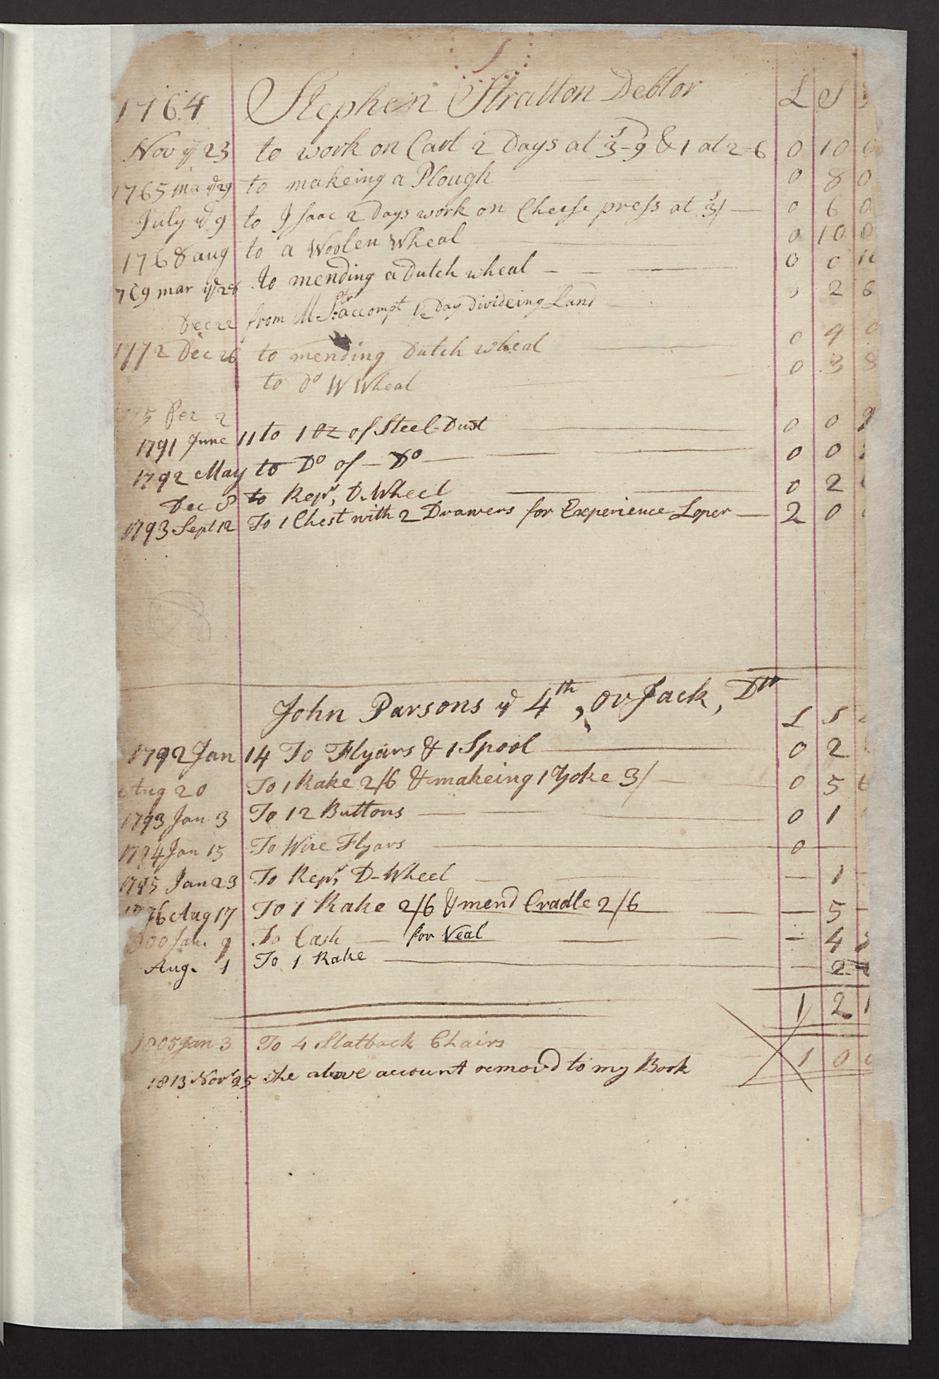 1
1764 Stephen Stratton Debtor L S
Nov ye 23 to work on Cart 2 Days at 3-9 & 1 at 2-6 0 10 0
1765 ma ye 29 to makeing a Plough 0 8 0
July ye 9 to Isaac 2 Days work on Cheese press at 3/ 0 6 0
1768 aug to a Woolen Wheal 0 10 0
769 mar ye 28 to mending a dutch wheal 0 0
Dec 22 from accompt 1/2 Day divideing Land 2 6
1772 Dec 26 to mending Dutch wheal 0 4 0
to Do W Wheal 0 3 8
2
1791 June 11 to 1 oz of Steel-Dust 0 0 9
1792 May to Do of - Do 0 0
Dec 8 to Repr, D-Wheel 0 2
1793 Sept 12 To 1 Chest with 2 Drawers for Experience Loper 2 0
John Parsons ye 4th, or Jack, Dtr
L S
1792 Jan 14 To Flyars & 1 Spool 0 2
Aug 20 To 1 Rake 2/6 & makeing 1 Yoke 3/ 0 5 6
1793 Jan 3 To 12 Buttons 0 1
1794 Jan 15 To Wire Flyars 0 —
1795 Jan 23 To Repr, D-Wheel — 1
1796 Aug 17 To 1 Rake 2/6 & mend Cradle 2/6 — 5 —
800 Jan. 9 To Cash for Veal — 4
Aug. 1 To 1 Rake — 2
1 2 1
1805 Jan 3 To 4 Slatback Chairs 1 0 0
1813 Novr 25 the above account removd to my Book